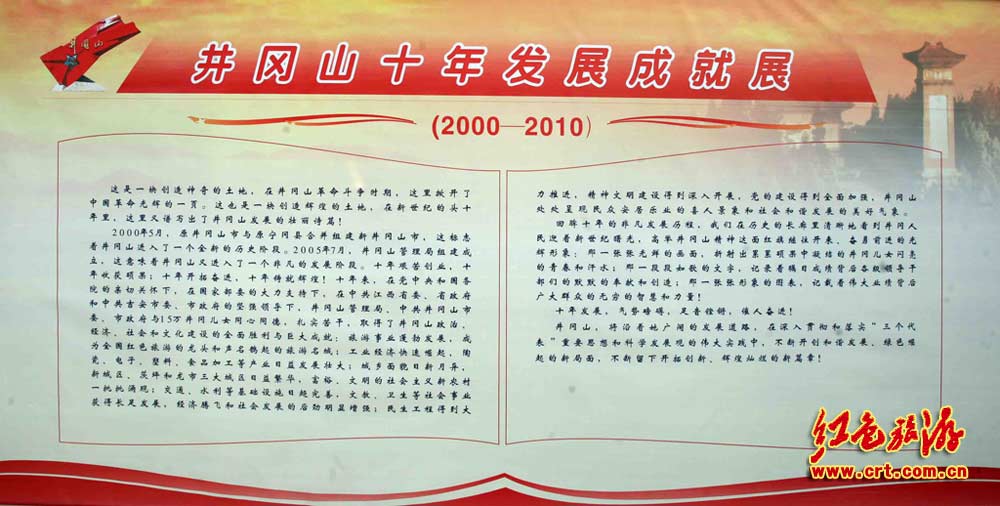 井冈山
井冈山十年发展成就展
(2000—2010)
这是一块创造神奇的土地，在井冈山革命斗争时期，这里掀开了
中国革命光辉的一页。这也是一块创造辉煌的土地，在新世纪的头十
年里，这里又谱写出了井冈山发展的壮丽诗篇！
2000年5月，原井冈山市与原宁冈县合并组建新井冈山市，这标志
着井冈山进入了一个全新的历史阶段。2005年7月，井冈山管理局组建成
立，这意味着井冈山又进入了一个非凡的发展阶段。十年艰苦创业，十
年收获硕果；十年开拓奋进，十年铸就辉煌！十年来，在党中央和国务
院的亲切关怀下，在国家部委的大力支持下，在中共江西省委、省政府
和中共吉安市委、市政府的坚强领导下，井冈山管理局、中共井冈山市
委、市政府与15万井冈儿女同心同德，扎实苦干，取得了井冈山政治、
经济、社会和文化建设的全面胜利与巨大成就：旅游事业蓬勃发展，成
为全国红色旅游的龙头和声名鹊起的旅游名城；工业经济快速崛起，陶
瓷、电子、塑料、食品加工等产业日益发展壮大；城乡面貌日新月异，
新城区、茨坪和龙市三大城区日益繁华，富裕、文明的社会主义新农村
一批批涌现；交通、水利等基础设施日趋完善，文教、卫生等社会事业
获得长足发展，经济腾飞和社会发展的后劲明显增强；民生工程得到大
力推进，精神文明建设得到深入开展，党的建设得到全面加强，井冈山
处处呈现民众安居乐业的喜人景象和社会和谐发展的美好气象。
回眸十年的非凡发展历程，我们在历史的长廊里清晰地看到井冈人
民迎着新世纪曙光，高举井冈山精神这面红旗继往开来、奋勇前进的光
辉形象；那一张张光鲜的画面，折射出累累硕果中凝结的井冈儿女闪亮
的青春和汗水；那一段段如歌的文字，记录着瞩目成绩背后各级领导干
部们的默默的奉献和创造；那一张张形象的图表，记载着伟大业绩背后
广大群众的无穷的智慧和力量！
十年发展，气势磅礴，足音铿锵，催人奋进！
井冈山，将沿着她广阔的发展道路，在深入贯彻和落实“三个代
表”重要思想和科学发展观的伟大实践中，不断开创和谐发展、绿色崛
起的新局面，不断留下开拓创新、辉煌灿烂的新篇章！
红色旅游
www.crt.com.cn